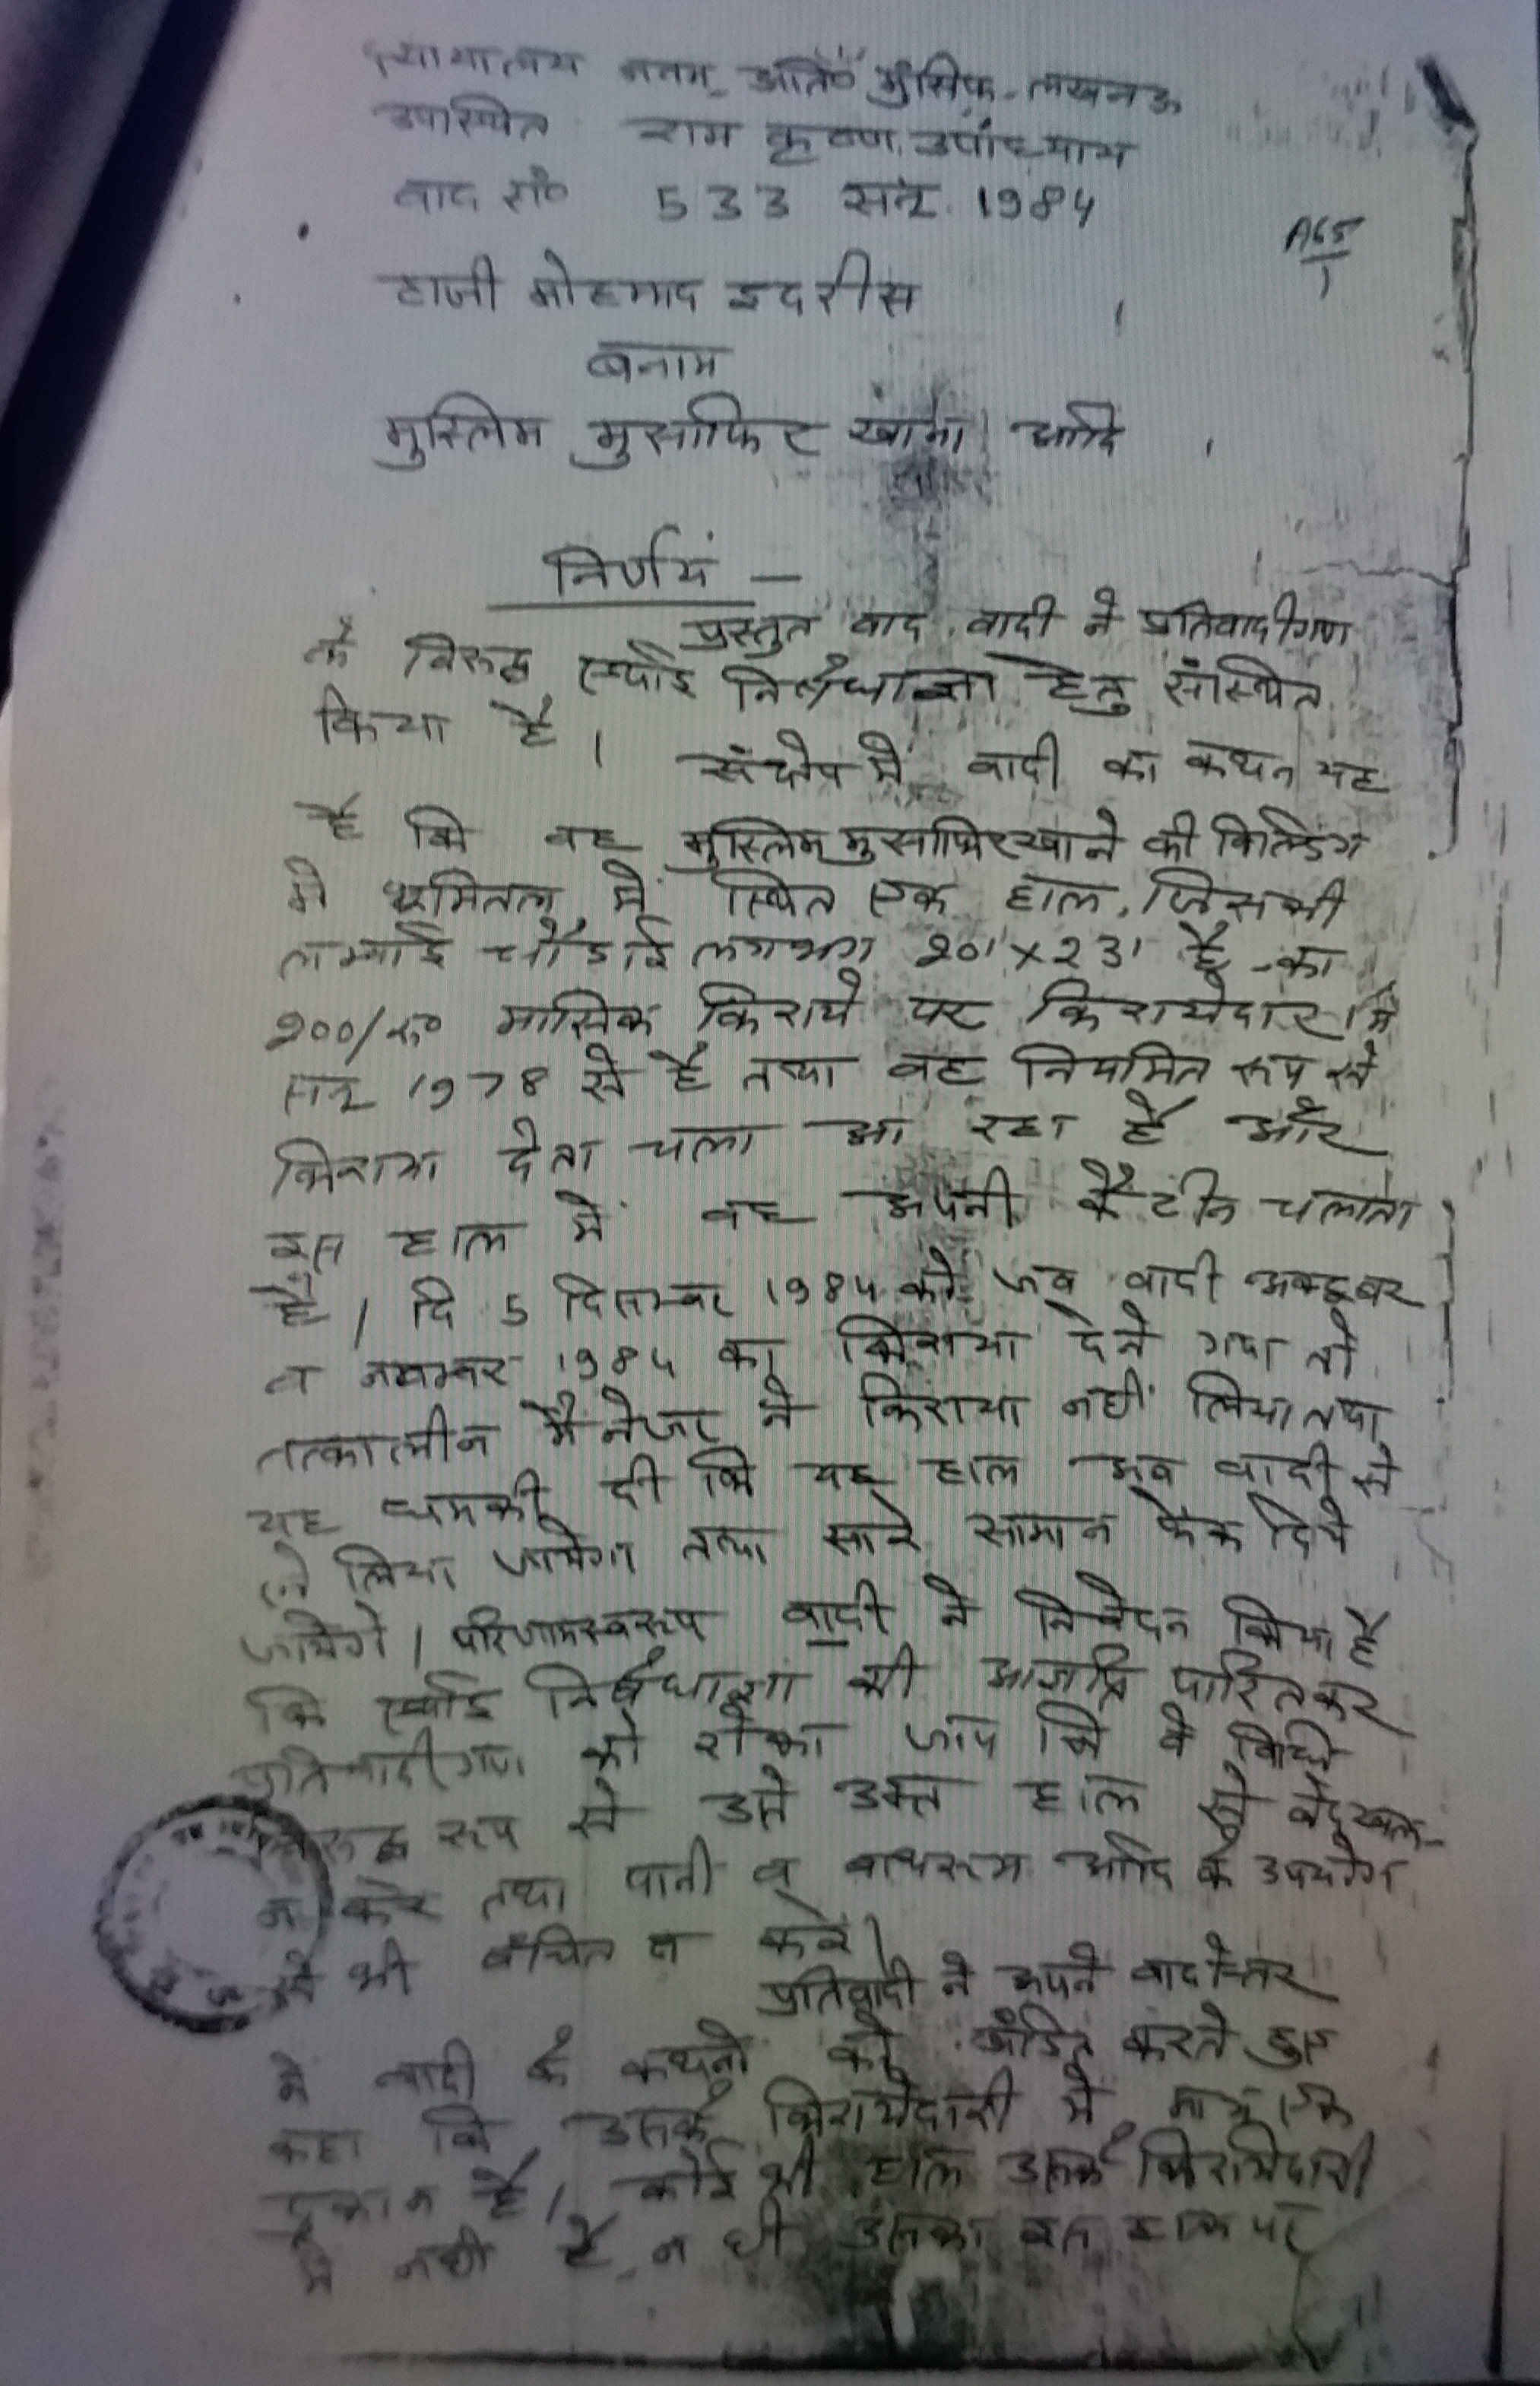 न्यायालय नवम् अति० मुंसिफ-लखनऊ
उपस्थित राम कृष्ण उपाध्याय
वाद सं० 533 सन् 1984
A65/1
हाजी मोहम्मद इदरीस
बनाम
मुस्लिम मुसाफिर खाना आदि
निर्णय —
प्रस्तुत वाद वादी ने प्रतिवादीगण
के विरूद्ध स्थाई निषेधाज्ञा हेतु संस्थित
किया है।
संक्षेप में वादी का कथन यह
है कि वह मुस्लिम मुसाफिरखाने की बिल्डिंग
में भूमितल में स्थित एक हाल, जिसकी
लम्बाई चौडाई लगभग 20'x23' है -का
200/रू० मासिक किराये पर किरायेदार
सन् 1978 से है तथा वह नियमित रूप से
किराया देता चला आ रहा है और
इस हाल में वह अपनी कैंटीन चलाता
है। दि 5 दिसम्बर 1984 को जब वादी अक्टूबर
व नवम्बर 1984 का किराया देने गया तो
तत्कालीन मैनेजर ने किराया नहीं लिया तथा
यह धमकी दी कि यह हाल अब वादी से
ले लिया जायेगा तथा सारे सामान फेंक दिये
जायेंगे। परिणामस्वरूप वादी ने निवेदन किया है
कि स्थाई निषेधाज्ञा की आज्ञप्ति पारित कर
प्रतिवादीगण को रोका जाय कि वे विधि
विरूद्ध रूप से उसे उक्त हाल से बेदखल-
न करें तथा पानी व बाथरूम आदि के उपयोग
से भी वंचित न करें।
प्रतिवादी ने अपने वादोत्तर
में वादी के कथनों को खंडित करते हुए
कहा कि उसके किरायेदारी में मात्र एक
दुकान है। कोई भी हाल उसके किरायेदारी
में नहीं है, न ही उसका इस हाल पर